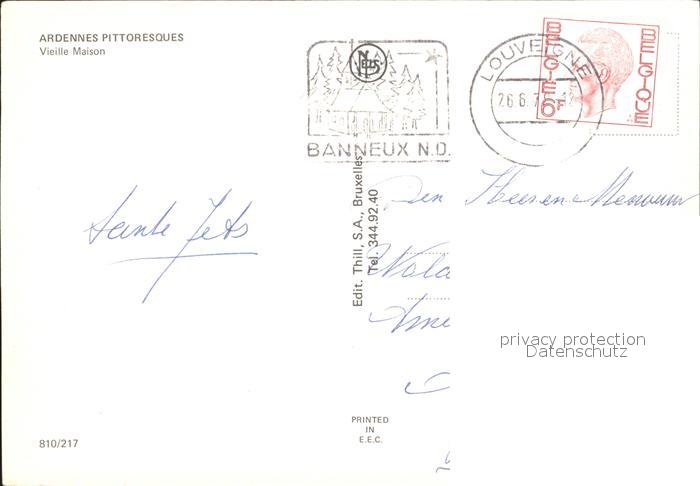 ARDENNES PITTORESQUES
Vieille Maison
BANNEUX N.D.
LOUVEIGNE
26.6.7
BELGIE 6F BELGIQUE
Tante Jets
Edit. Thill, S.A., Bruxelles
Tel. 344.92.40
Den Heer en Mevrouw
privacy protection
Datenschutz
PRINTED
IN
E.E.C.
810/217